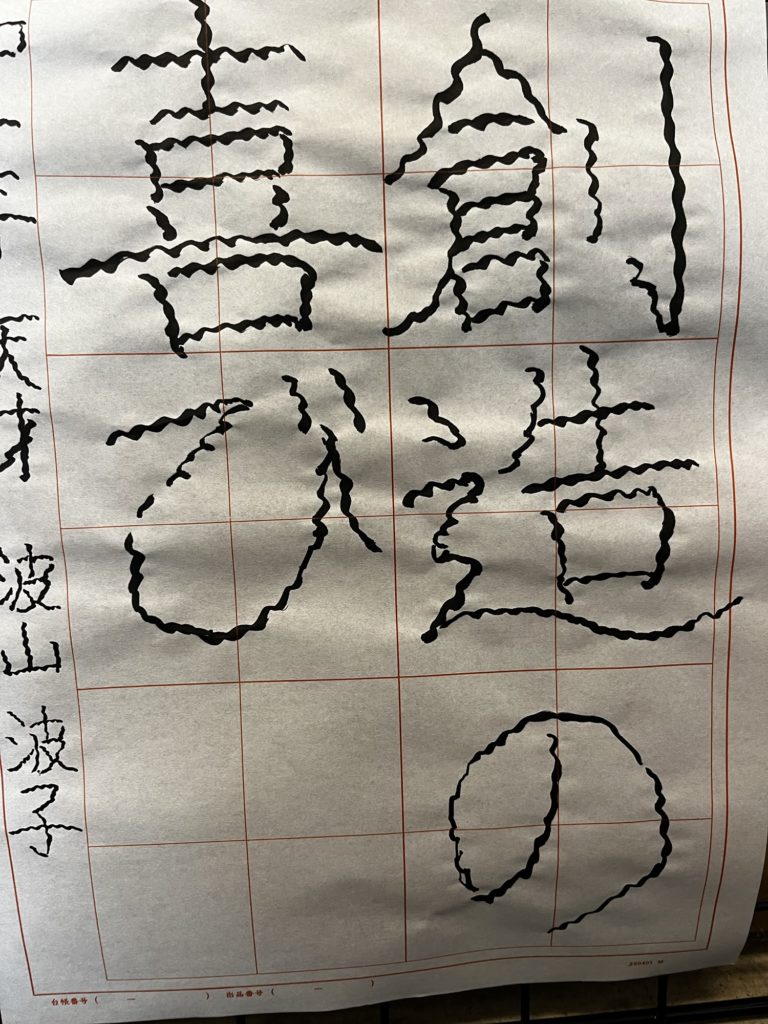 創造の
喜び
波山 波子
台帳番号（　ー　）　出品番号（　ー　）